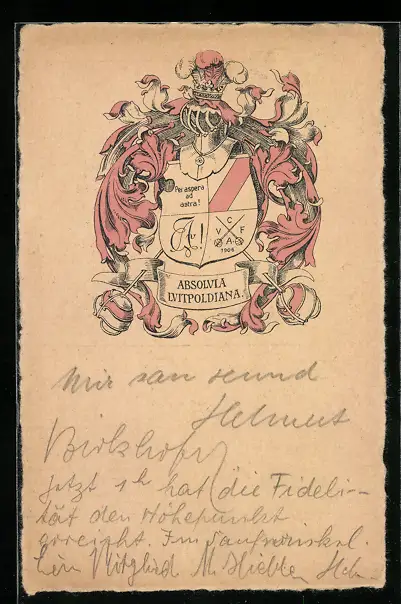 Per aspera
ad
astra!
C
V F
A
1906
ABSOLVIA
LVITPOLDIANA.
Mir san
Helmut
Birkhofer
jetzt 1h hat die Fideli-
tät den Höhepunkt
erreicht. Im Saufwinkel.
Ein Mitglied M.